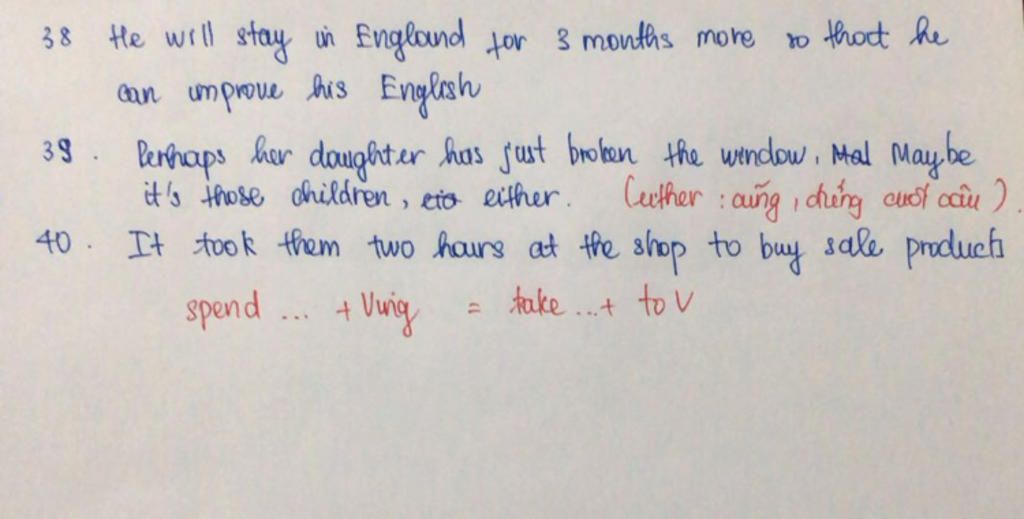 38 He will stay in England for 3 months more so that he
can improve his English
39. Perhaps her daughter has just broken the window. Mal Maybe
it's those children, eio either. (either : cũng, đứng cuối câu).
40. It took them two hours at the shop to buy sale products
spend ... + Ving = take ... + to V